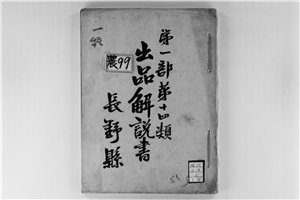 第一部第十四類
出品解説書
長野縣
農99